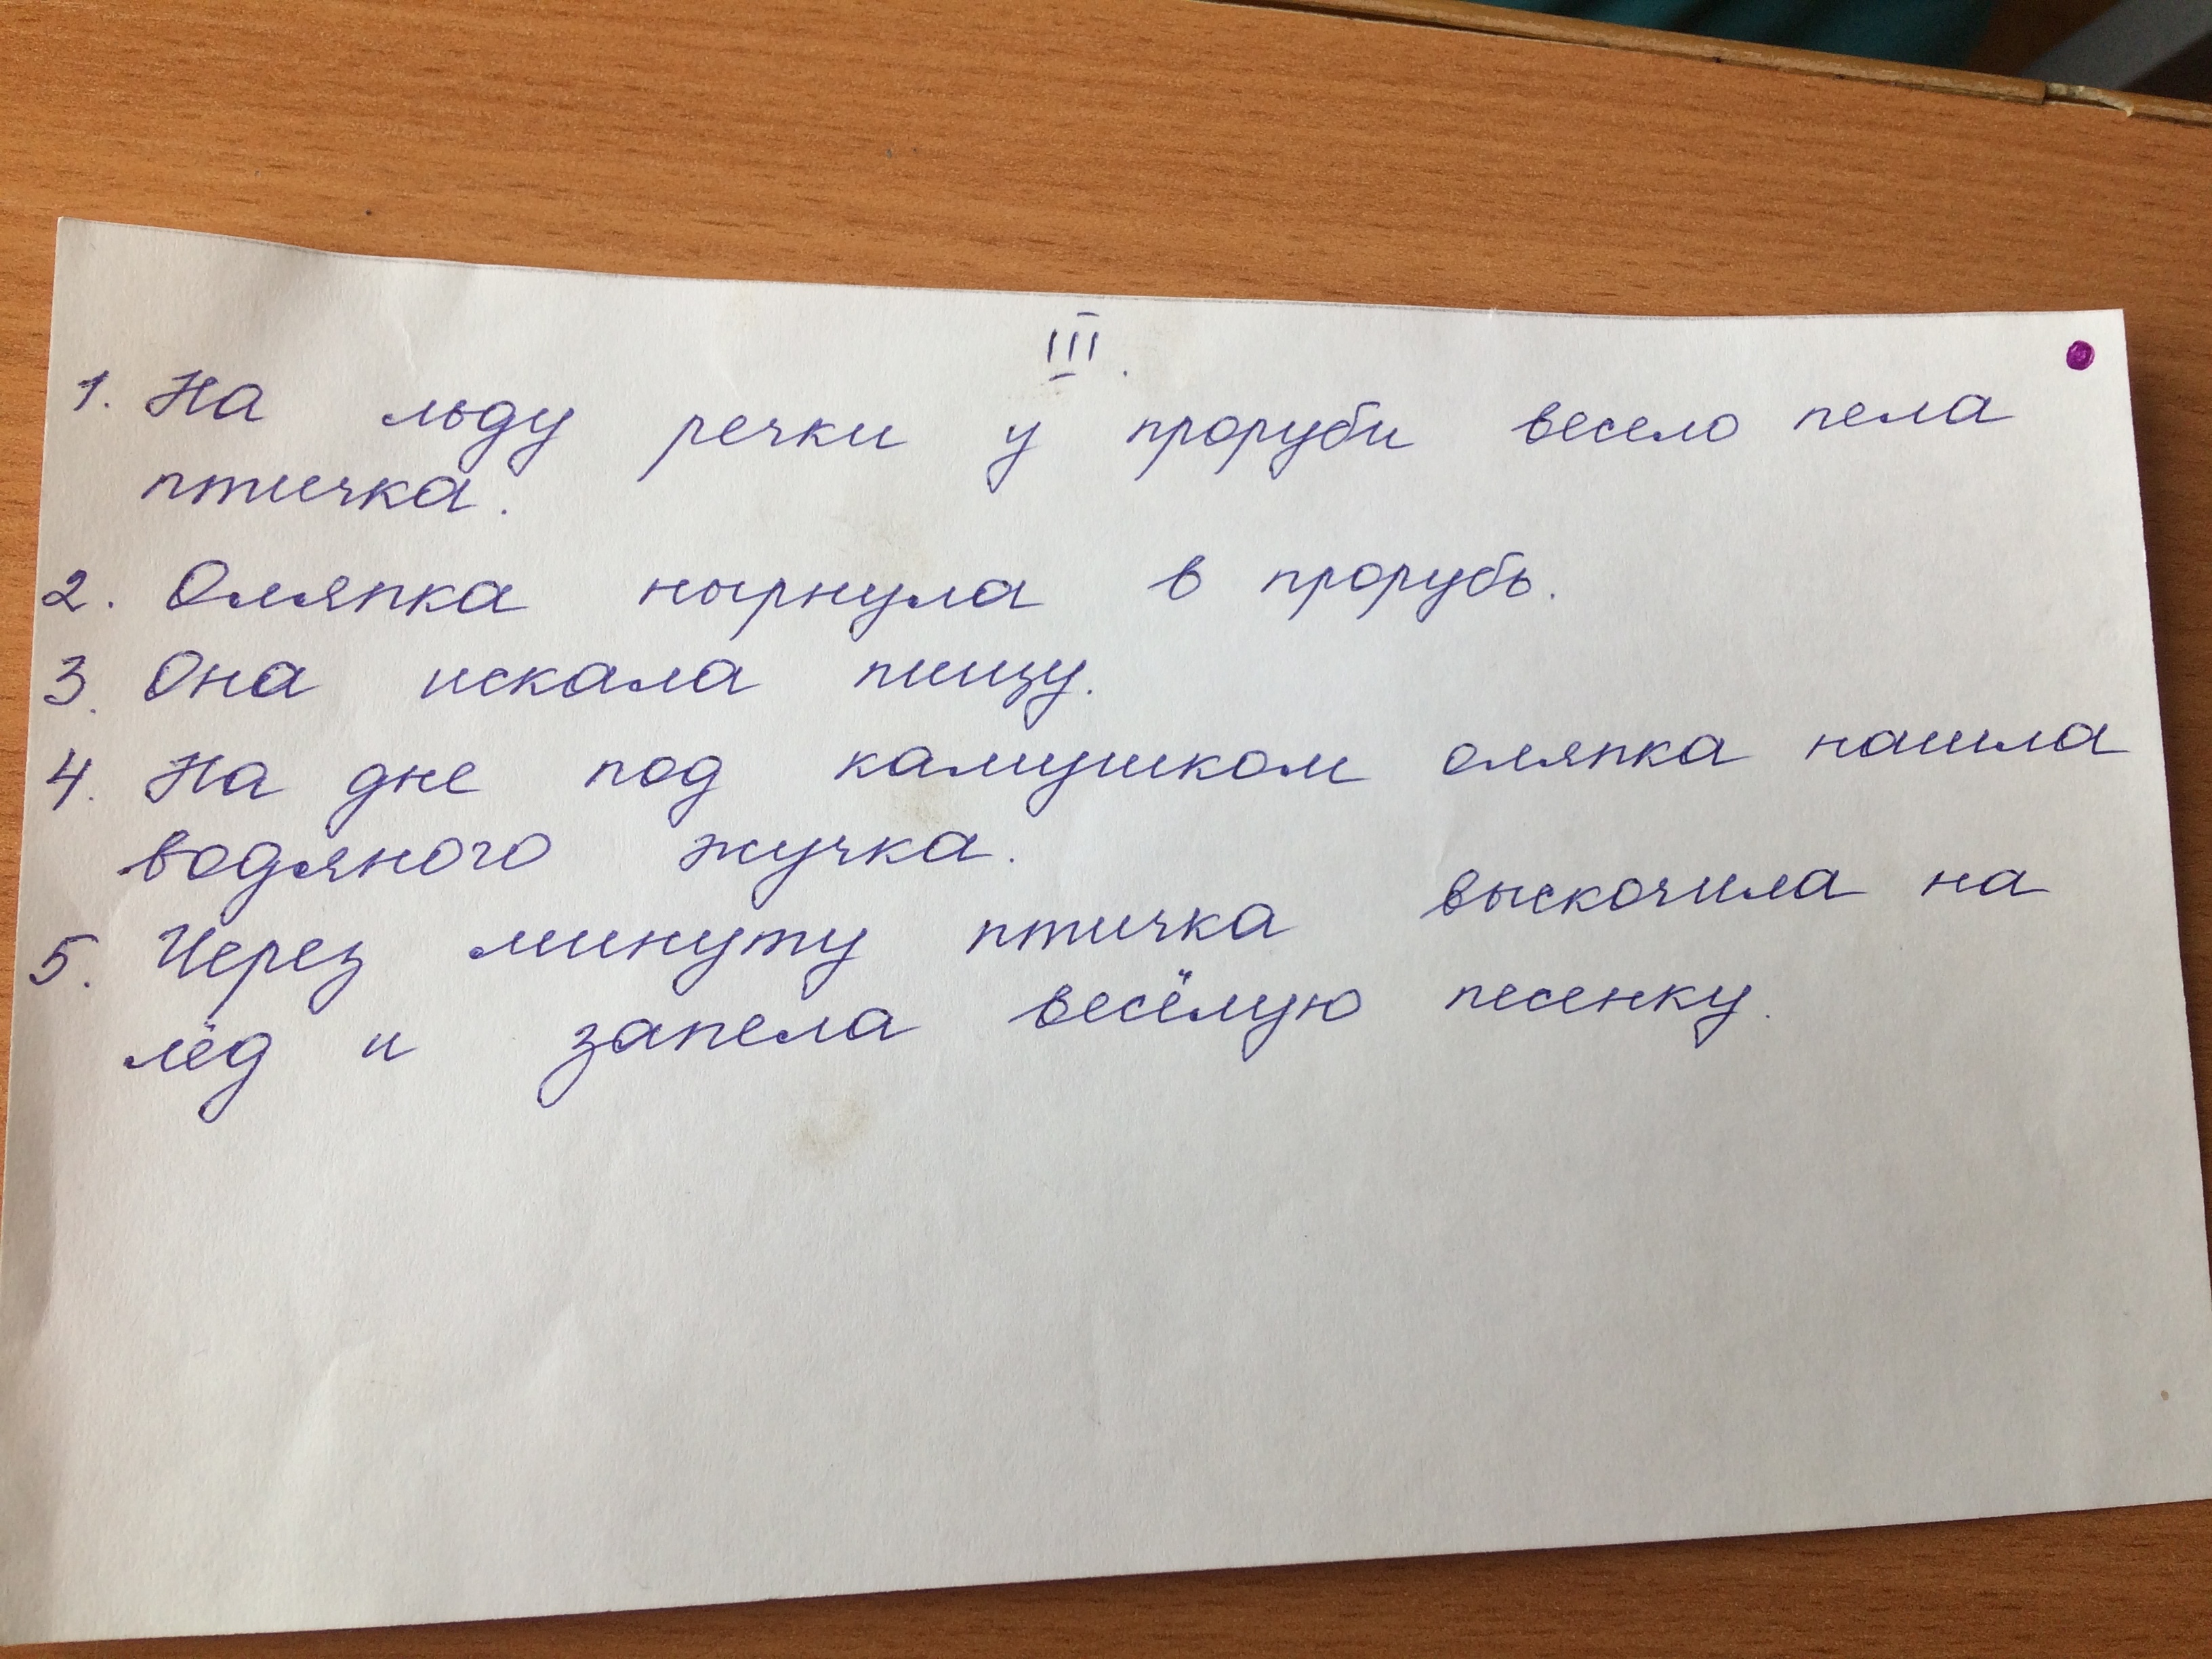 III.
1. На льду речки у проруби весело пела
птичка.
2. Оляпка нырнула в прорубь.
3. Она искала пищу.
4. На дне под камушком оляпка нашла
водяного жучка.
5. Через минуту птичка выскочила на
лёд и запела весёлую песенку.